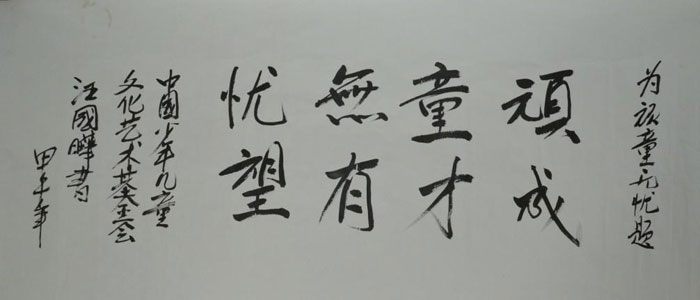 为顽童无忧题
頑童無忧
成才有望
中國少年儿童
文化艺术基金会
汪國曄書
甲午年